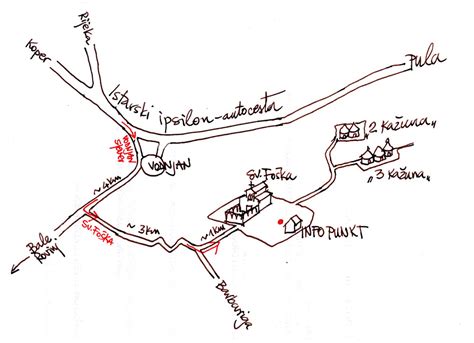 Rijeka
Koper
Istarski ipsilon-autocesta
Pula
Vodnjan
sjever
VODNJAN
"2 Kažuna"
"3 Kažuna"
Sv. Foška
~4km
Sv. Foška
~3km
~1km
INFO PUNKT
Bale
Rovinj
Barbariga